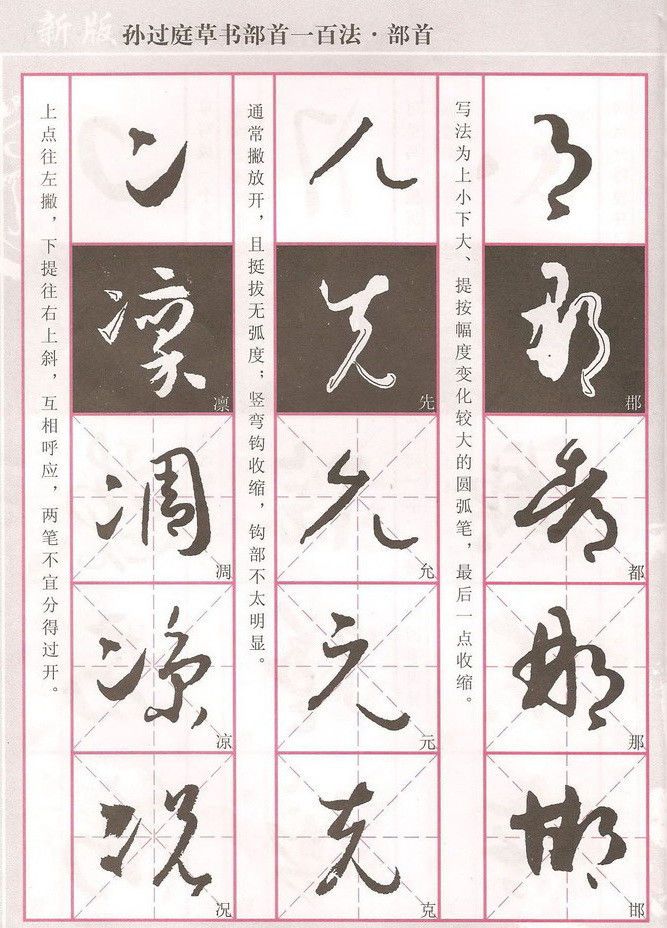 新版 孙过庭草书部首一百法·部首
写法为上小下大、提按幅度变化较大的圆弧笔，最后一点收缩。
阝
郡
郡
都
都
那
那
邯
邯
通常撇放开，且挺拔无弧度；竖弯钩收缩，钩部不太明显。
儿
先
先
允
允
元
元
克
克
上点往左撇，下提往右上斜，互相呼应，两笔不宜分得过开。
冫
凛
凛
凋
凋
凉
凉
况
况